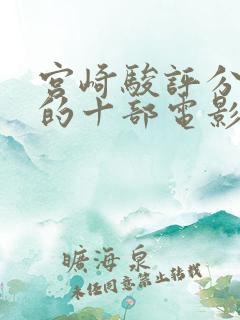 宮崎駿評分
的十部電影
曠海泉
未经同意禁止转载